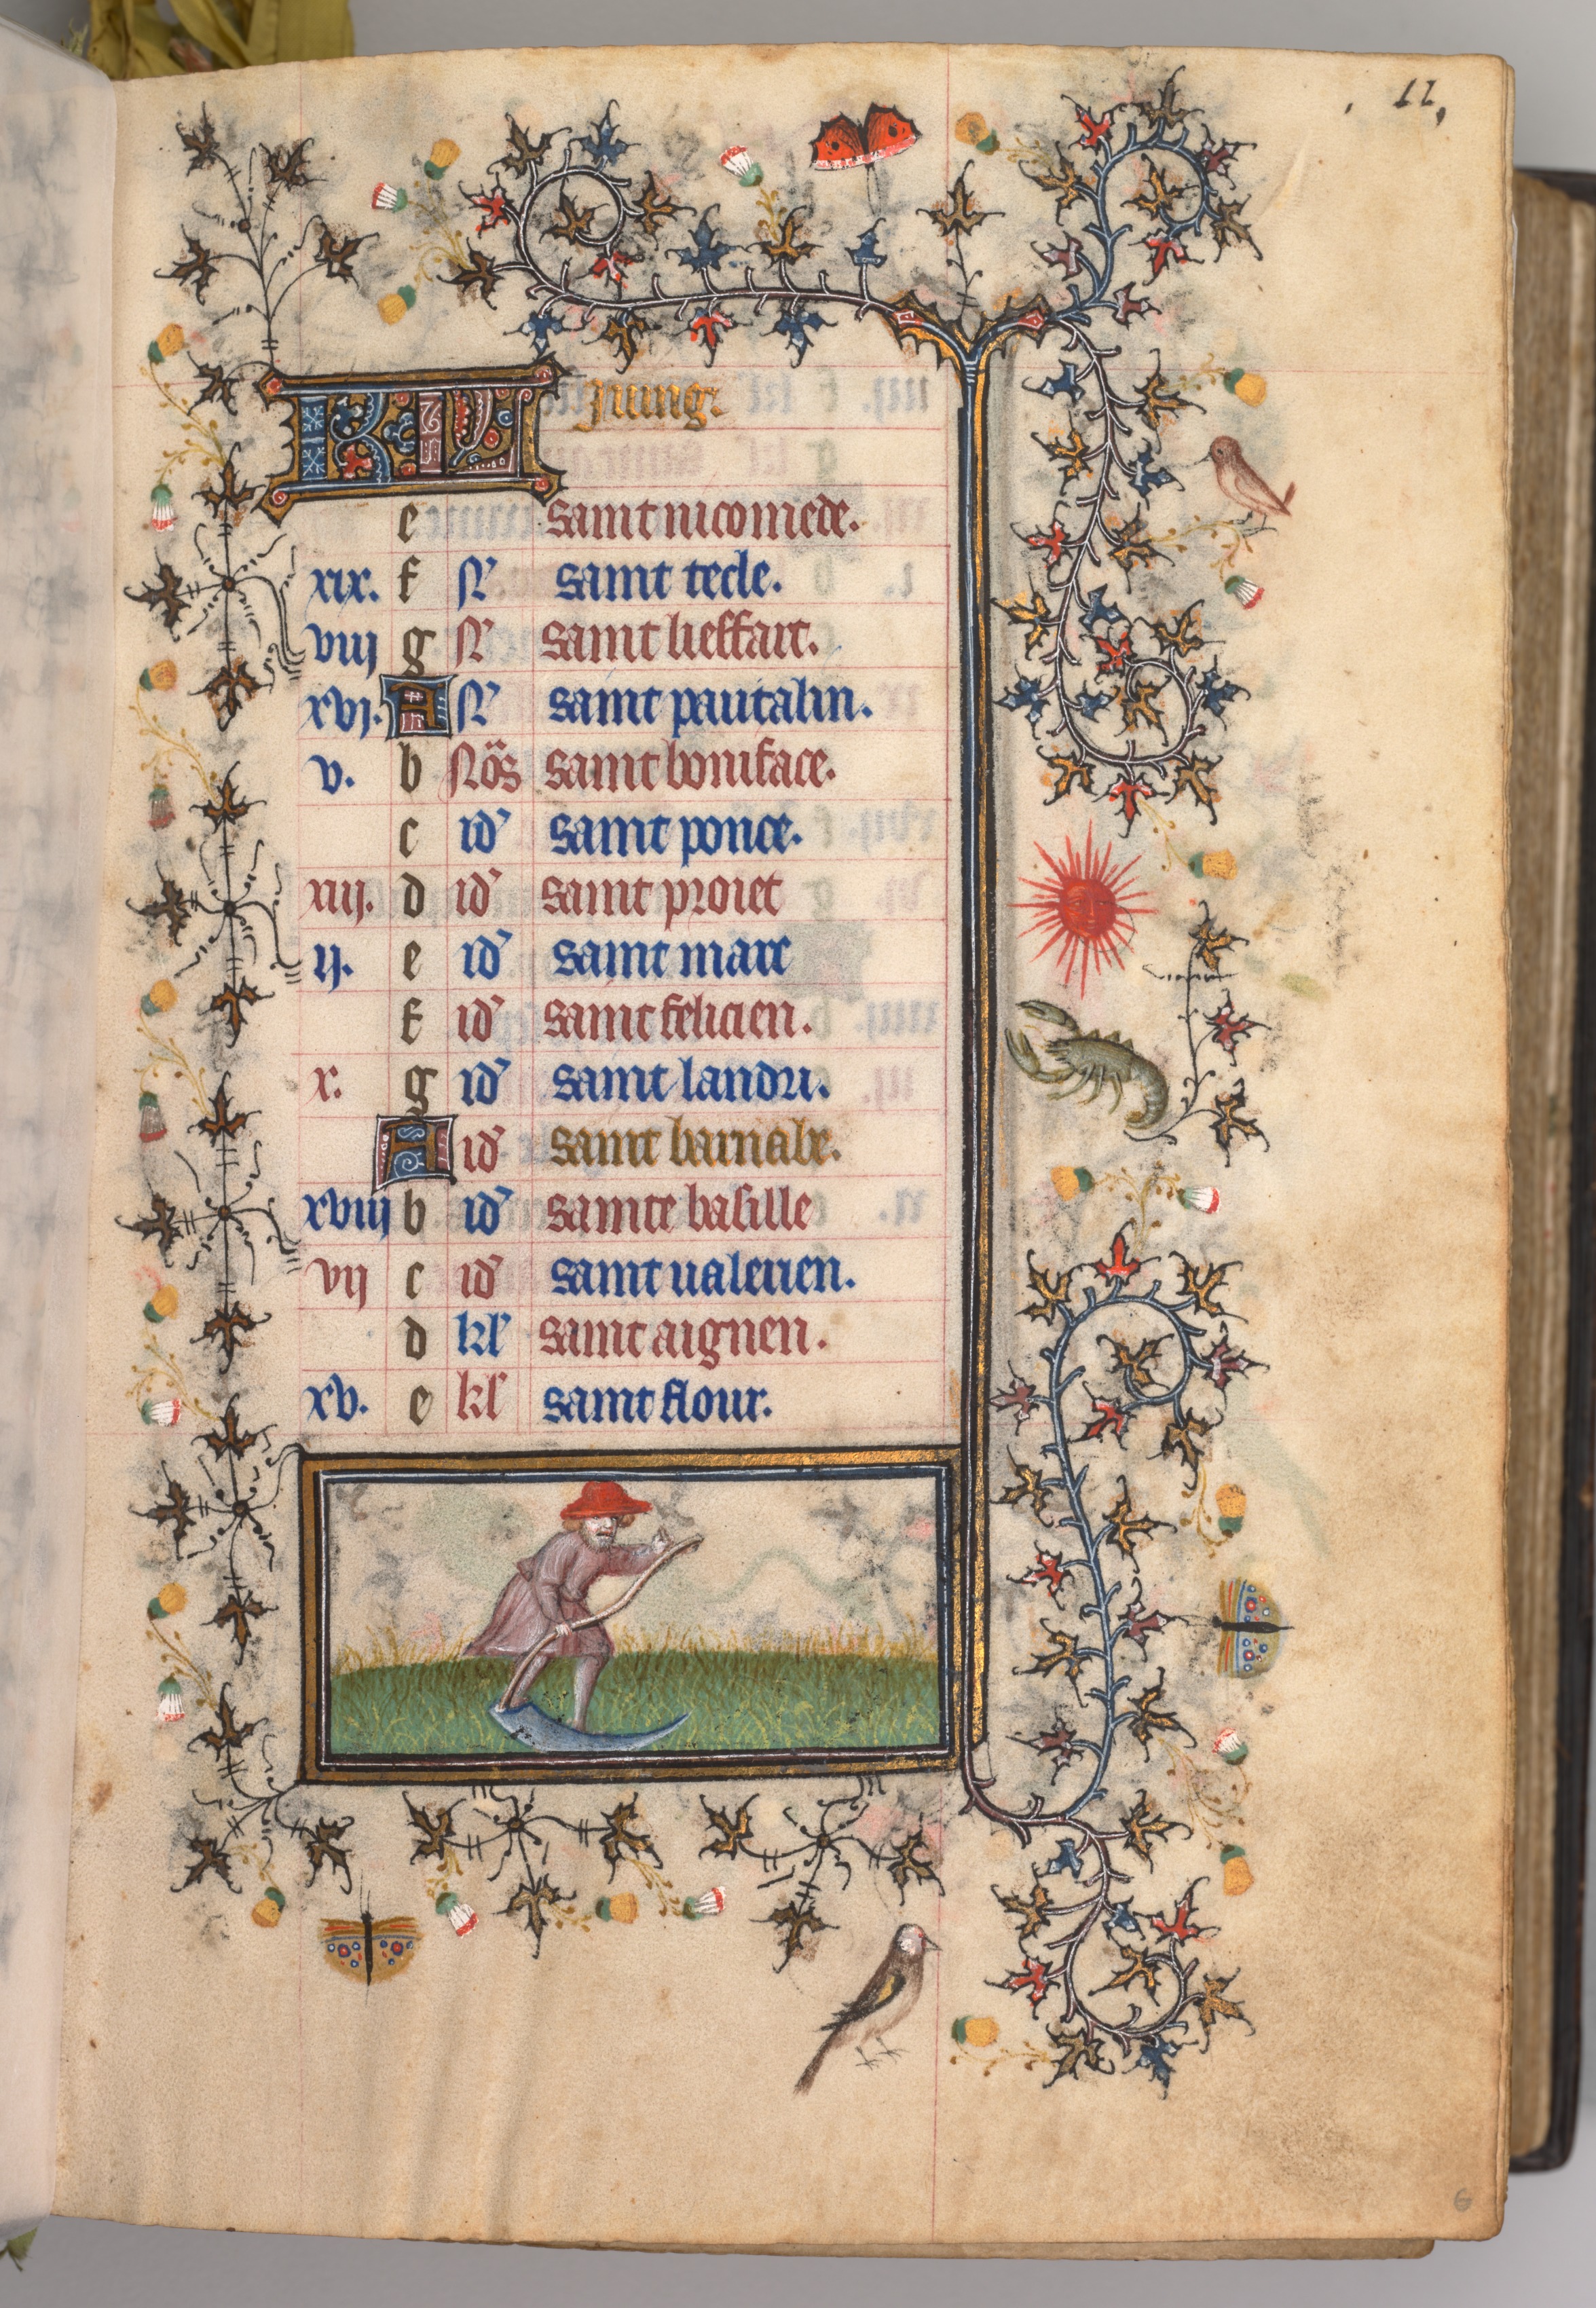 11,
KL Juing.
e saint nicomede.
xix. f N saint tecle.
viij g N saint lieffart.
xvj. A N saint pantalin.
v. b Nōs saint boniface.
c id saint ponce.
xiij. d id saint proiet
ij. e id saint marc
f id saint felicien.
x. g id saint landri.
A id saint barnabe.
xviij b id sainte basille
vij c id saint valerien.
d kl saint aignen.
xv. e kl saint flour.
6